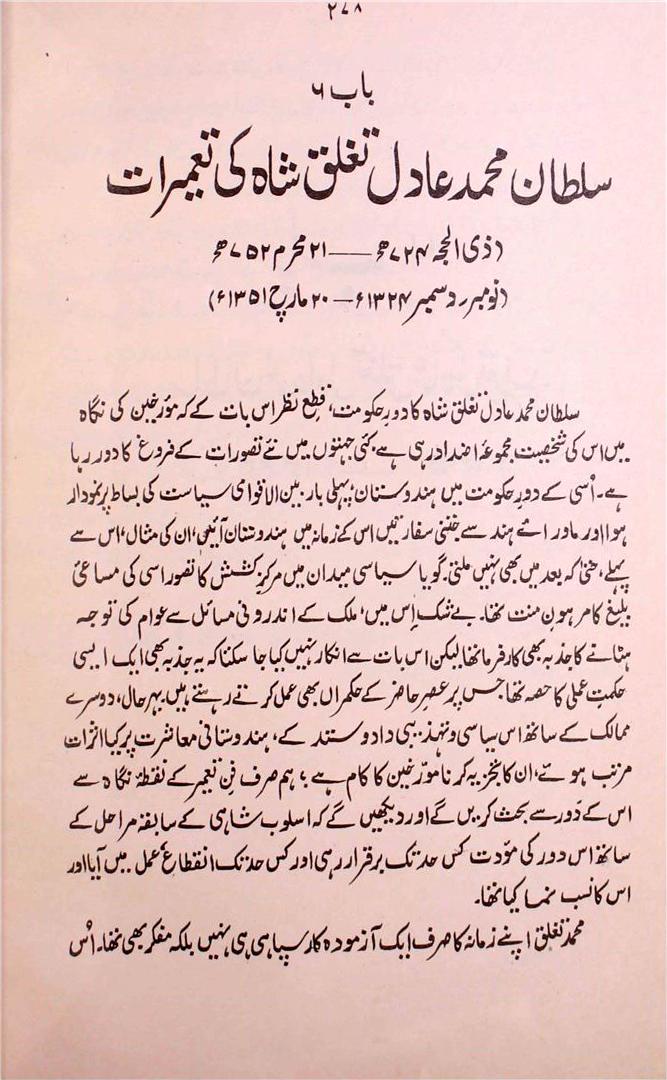 ۲۷۸
باب ۶
سلطان محمد عادل تغلق شاہ کی تعمیرات
(ذی الحجہ ۷۲۴ھ — ۲۱ محرم ۷۵۲ھ)
(نومبر ر دسمبر ۱۳۲۴ء — ۲۰ مارچ ۱۳۵۱ء)
سلطان محمد عادل تغلق شاہ کا دورِ حکومت، قطع نظر اس بات کے کہ مؤرخین کی نگاہ
میں اس کی شخصیت مجموعۂ اضداد رہی ہے، کئی جہتوں میں نئے تصورات کے فروغ کا دور رہا
ہے۔ اُسی کے دورِ حکومت میں ہندوستان، پہلی بار، بین الاقوامی سیاست کی بساط پر نمودار
ہوا اور ماورائے ہند سے جتنی سفارتیں اس کے زمانہ میں ہندوستان آئیں، ان کی مثال، اس سے
پہلے، حتیٰ کہ بعد میں بھی نہیں ملتی۔ گویا سیاسی میدان میں مرکزِ کشش کا تصور اسی کی مساعیٔ
بلیغ کا مرہونِ منت تھا۔ بے شک اِس میں، ملک کے اندرونی مسائل سے عوام کی توجہ
ہٹانے کا جذبہ بھی کارفرما تھا لیکن اس بات سے انکار نہیں کیا جا سکتا کہ یہ جذبہ بھی ایک ایسی
حکمتِ عملی کا حصہ تھا جس پر عصرِ حاضر کے حکمراں بھی عمل کرتے رہتے ہیں۔ بہر حال، دوسرے
ممالک کے ساتھ اس سیاسی و تہذیبی داد و ستد کے، ہندوستانی معاشرت پر کیا اثرات
مرتب ہوئے، ان کا تجزیہ کرنا مؤرخین کا کام ہے؛ ہم صرف فنِ تعمیر کے نقطۂ نگاہ سے
اس کے دَور سے بحث کریں گے اور دیکھیں گے کہ اسلوبِ شاہی کے سابقہ مراحل کے
ساتھ اس دور کی مؤدت کس حد تک برقرار رہی اور کس حد تک انقطاع، عمل میں آیا اور
اس کا نسب نما کیا تھا۔
محمد تغلق اپنے زمانہ کا صرف ایک آزمودہ کار سپاہی ہی نہیں بلکہ مفکر بھی تھا۔ اُس